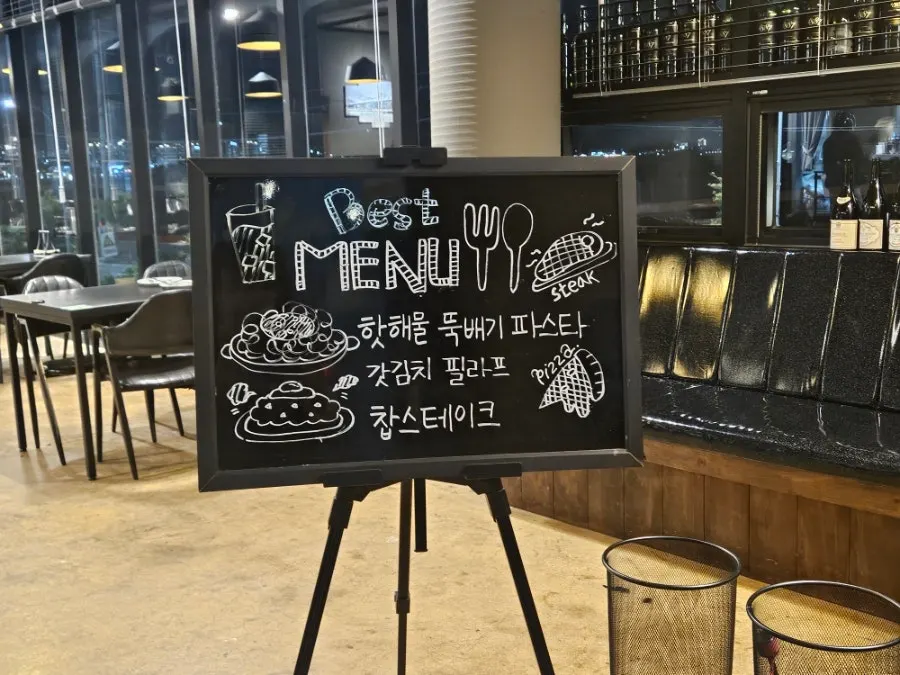 Best
MENU
steak
핫해물 뚝배기 파스타
갓김치 필라프
pizza
찹스테이크